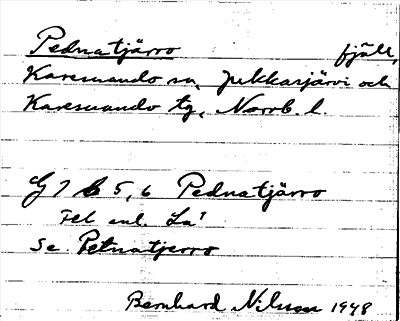 Pednatjärro fjäll,
Karesuando sn, Jukkasjärvi och
Karesuando tg, Norrb. l.
G7 b 5, 6 Pednatjärro
Fel enl. La'
Se. Petnatjerro
Bernhard Nilsson 1948